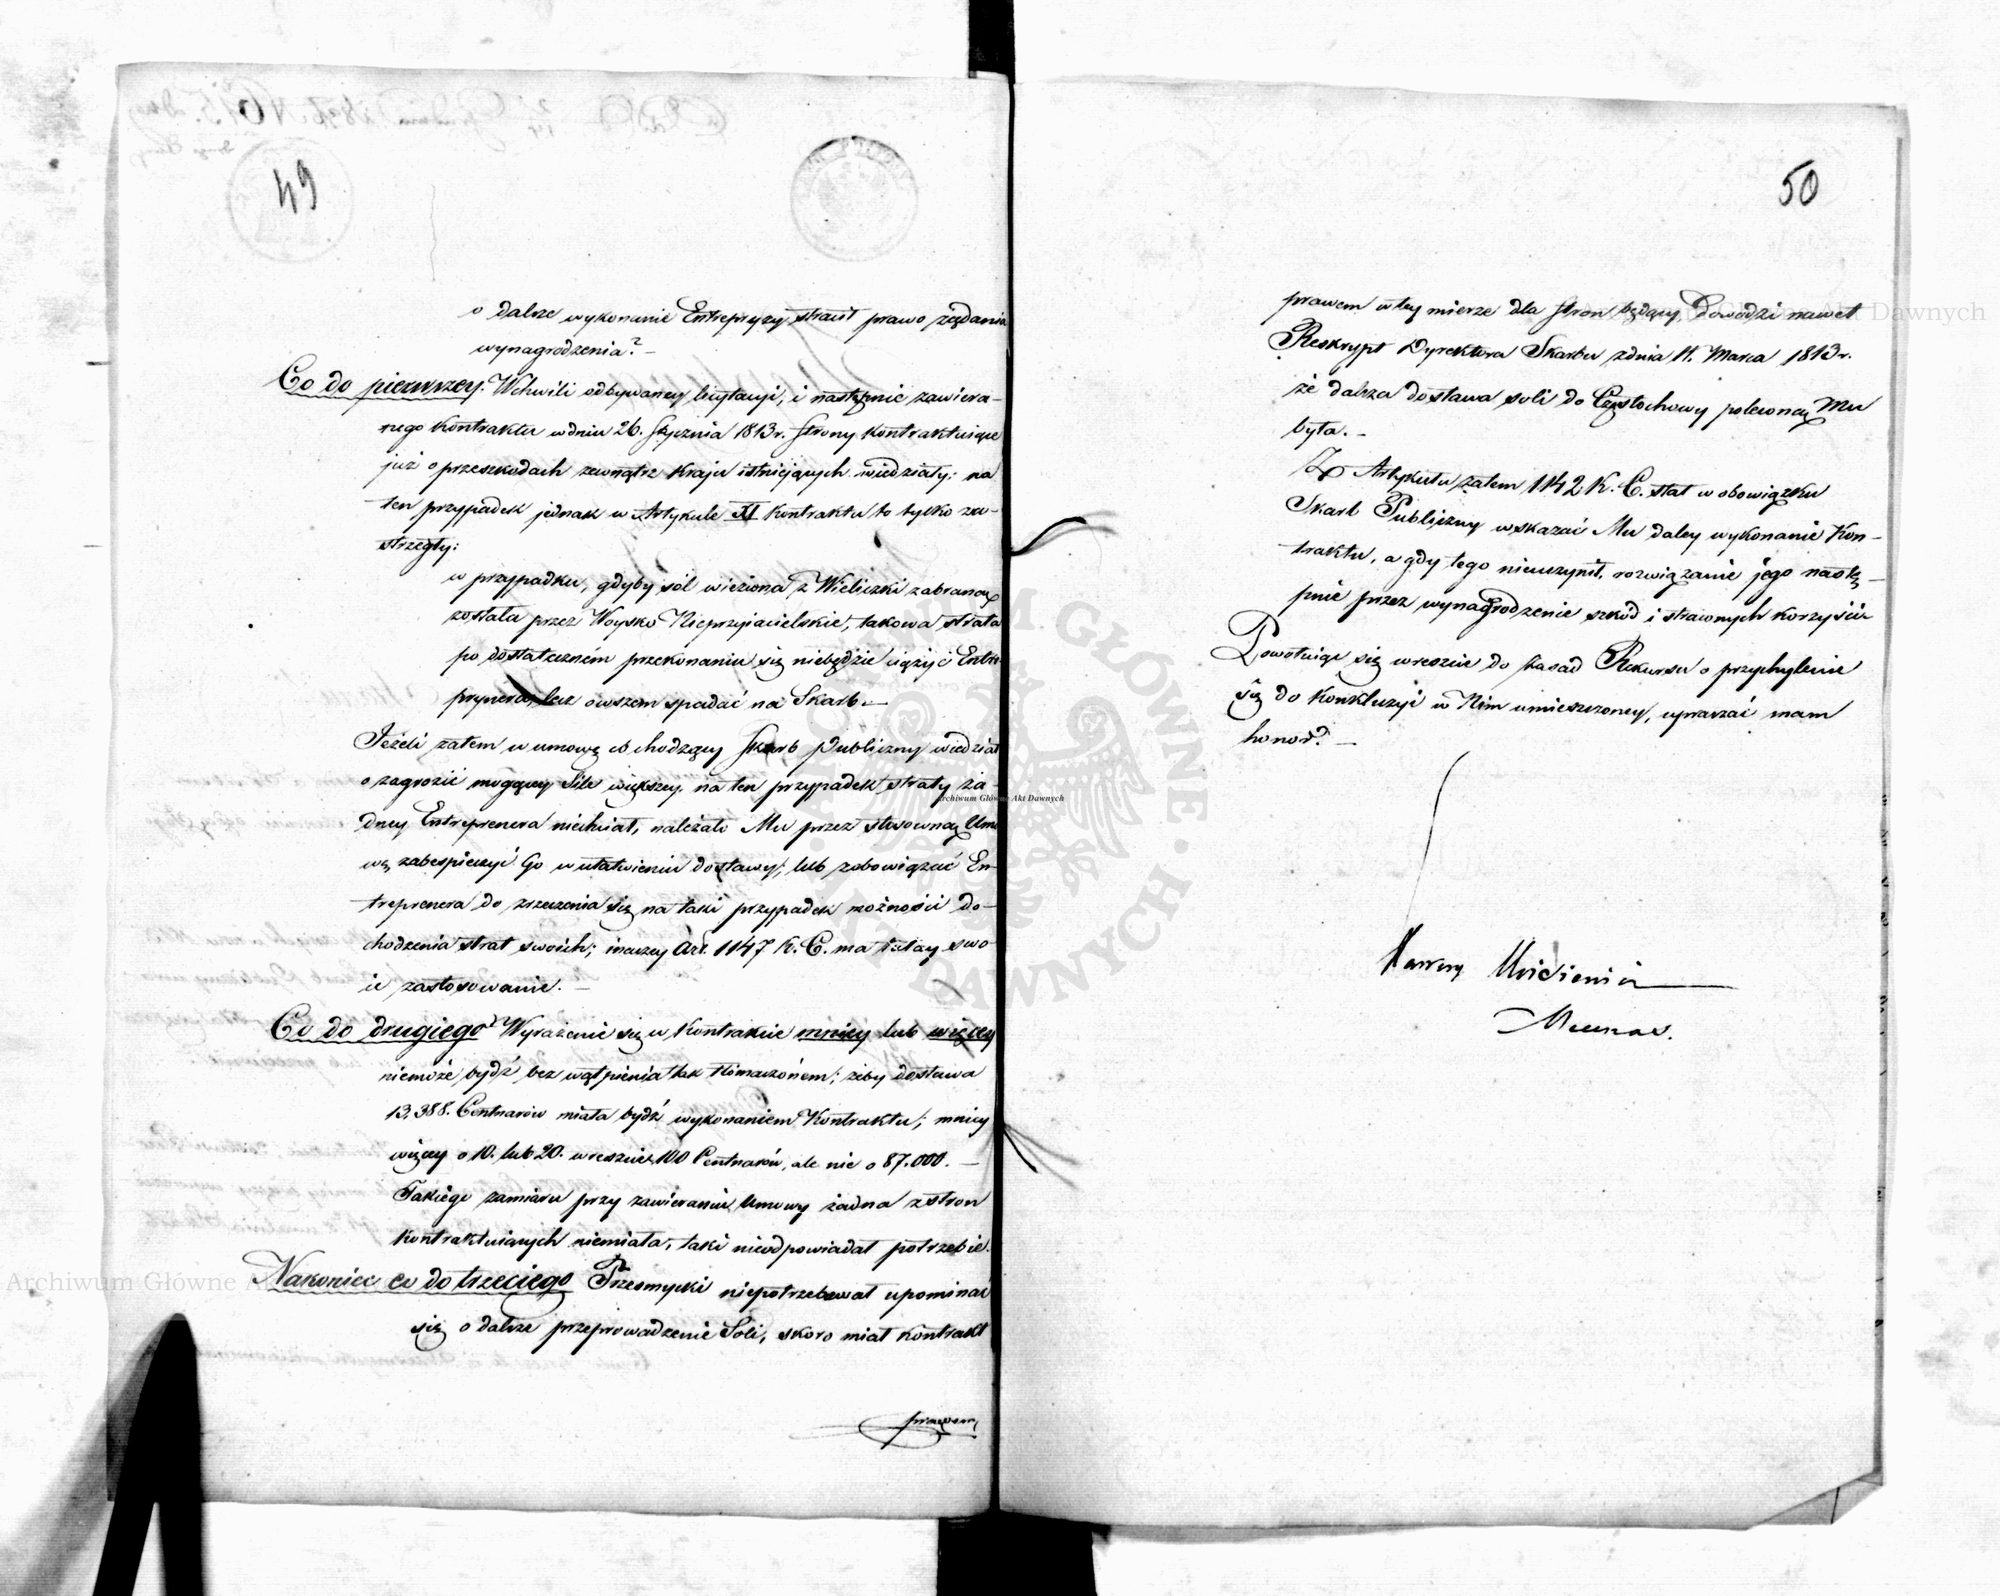 49
o dalsze wykonanie Entrepryzy stracił prawo żądania
wynagrodzenia? –
Co do pierwszey. W chwili odbywaney licytacyi, i następnie zawiera-
nego Kontraktu w dniu 26. Stycznia 1813 r. strony kontraktuiące
już o przeszkodach zewnątrz Kraju istniejących wiedziały; na
ten przypadek jednak w Artykule XI Kontraktu to tylko za-
strzegły:
w przypadku, gdyby sól wieziona z Wieliczki zabraną
została przez Woysko Nieprzyiacielskie, takowa strata
po dostateczném przekonaniu się niebędzie ciążyć Entre-
prynera, lecz owszem spadać na Skarb. –
Jeżeli zatem w umowę wchodzący Skarb Publiczny wiedział
o zagrozić mogącey Sile większey, na ten przypadek straty ża-
dney Entreprenera niechciał, należało Mu przez stosowną Umo-
wę zabespieczyć Go w ułatwieniu dostawy, lub zobowiązać En-
treprenera do zrzeczenia się na taki przypadek możności do-
chodzenia strat swoich; inaczey Art. 1147 K. C. ma tutay swo-
ie zastosowanie. –
Co do drugiego Wyrażenie się w Kontrakcie mniey lub więcey
niemoże bydź bez wątpienia tak tłómaczoném, żeby dostawa
13,388. Centnarów miała bydź wykonaniem Kontraktu; mniey
więcey o 10. lub 20. wreszcie 100 Centnarów, ale nie o 87.000. –
Takiego zamiaru przy zawieraniu Umowy żadna z stron
Kontraktuiących niemiała, taki nieodpowiadał potrzebie.
Nakoniec co do trzeciego Przesmycki niepotrzebował upominać
się o dalsze przeprowadzenie Soli, skoro miał Kontrakt
prawem
50
prawem w tey mierze dla stron będący. Dowodzi nawet
Reskrypt Dyrektora Skarbu z dnia 11. Marca 1813 r.
że dalsza dostawa soli do Częstochowy poleconą Mu
była. –
Z Artykułu zatem 1142 K. C. stał w obowiązku
Skarb Publiczny wskazać Mu daley wykonanie Kon-
traktu, a gdy tego nieuczynił, rozwiązanie jego nastę-
pnie przez wynagrodzenie szkód i straconych korzyści.
Powołuiąc się wreszcie do zasad Rekursu o przychylenie
się do Konkluzyi w Nim umieszczoney, upraszać mam
honor. –
Mecenas.
Archiwum Główne Akt Dawnych